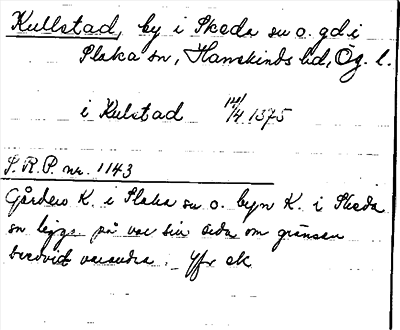 Kullstad, by i Skeda sn o. gd i
Slaka sn, Hanekinds hd, Ög. l.
i Kulstad 14/4 1375
S.R.P. nr. 1143
Gården K. i Slaka sn o. byn K. i Skeda
sn ligga på var sin sida om gränsen
bredvid varandra. Jfr ek.